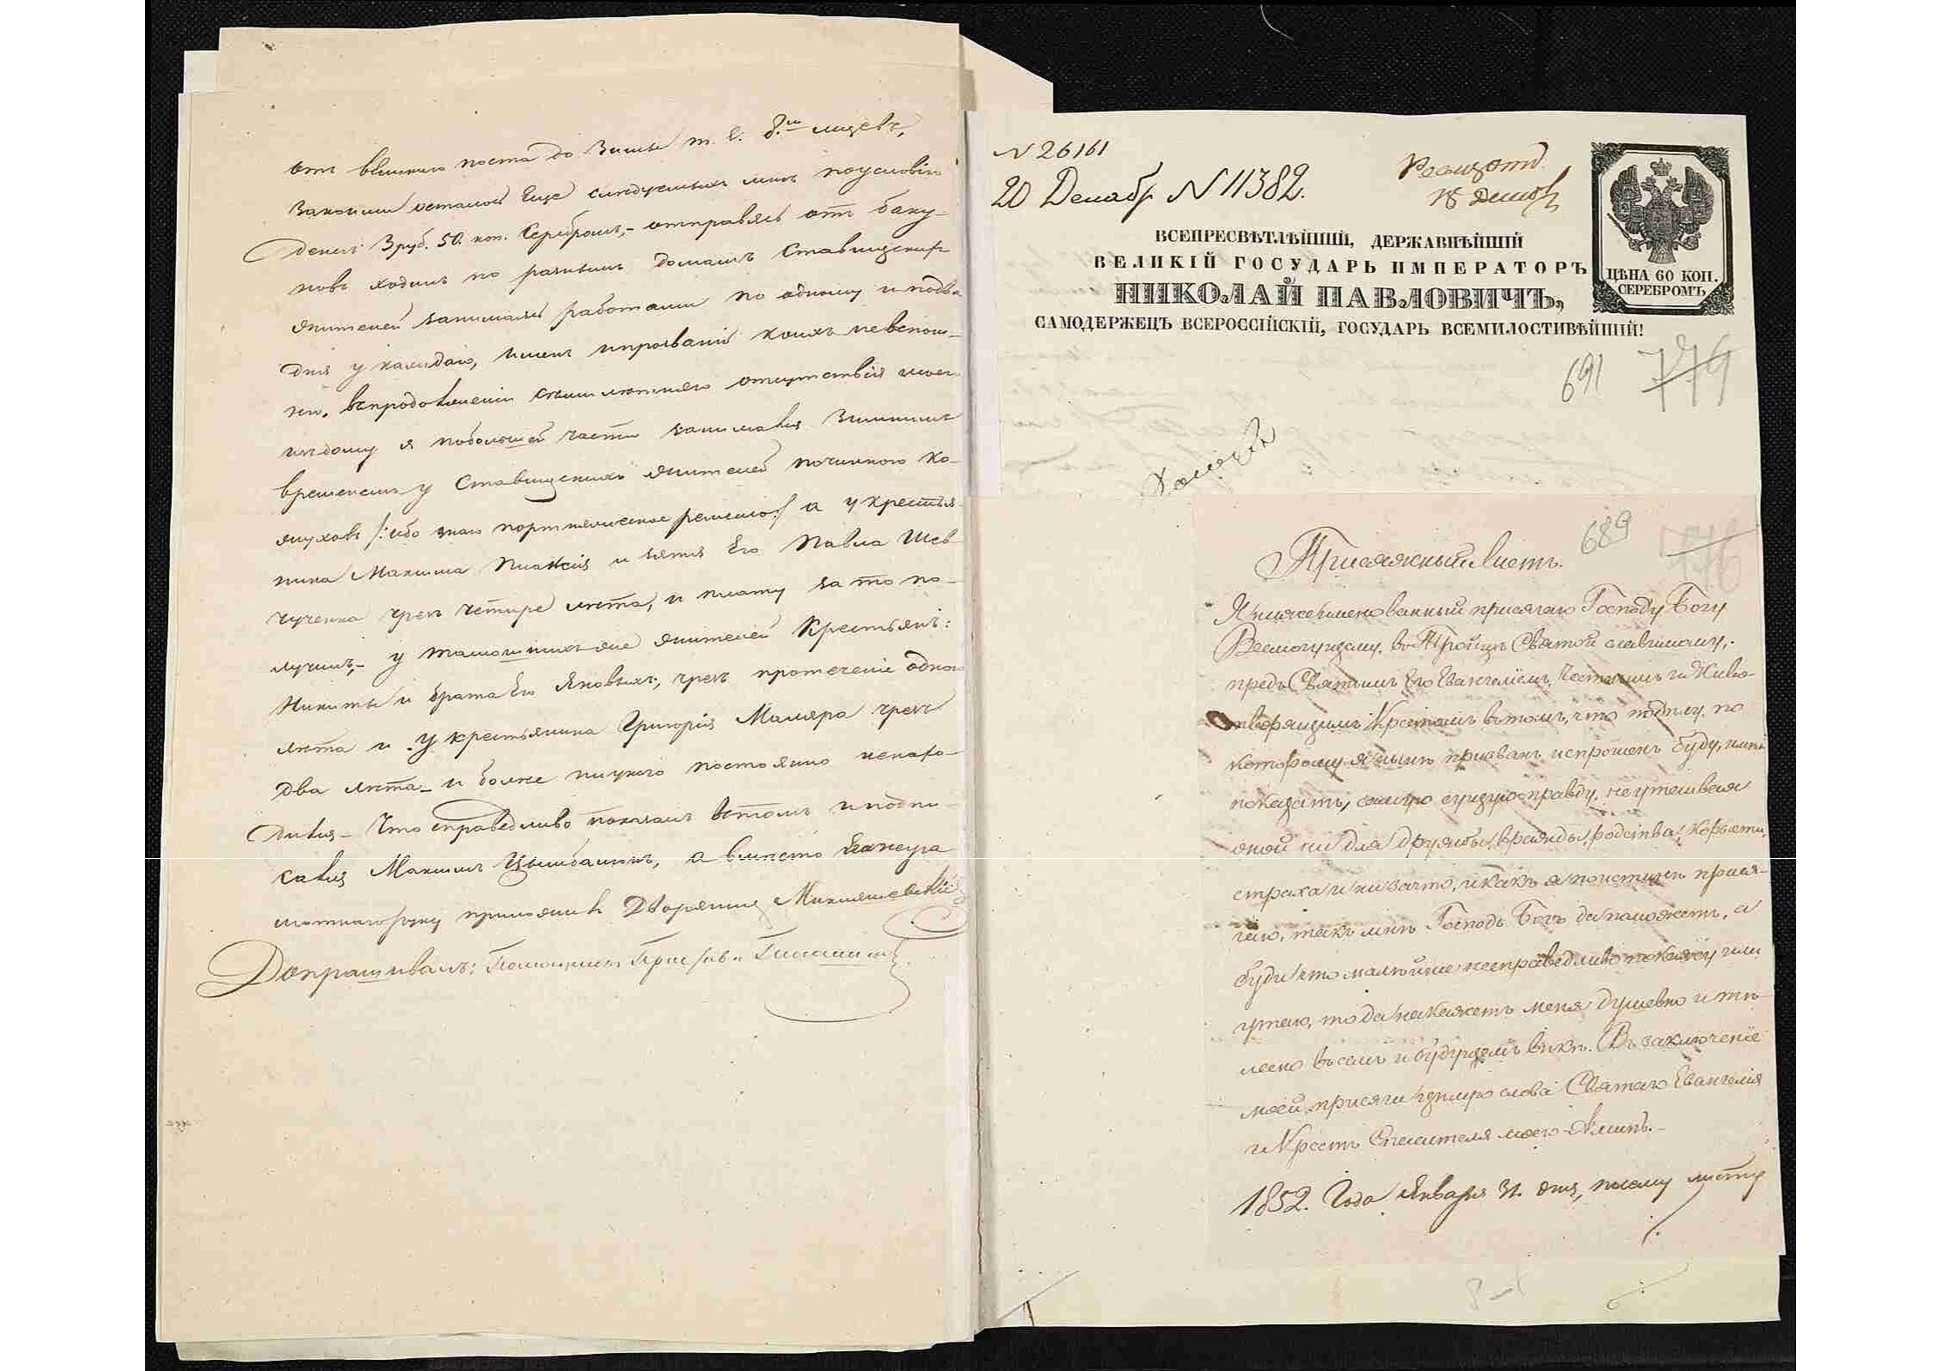 отъ великаго поста до зимы т. е. 8.ми месцевъ,
за коими осталось еще следуемыхъ мнѣ поусловію
денегъ 3 руб. 50. коп. серебромъ,- отправясь отъ баку-
новъ ходилъ по разнымъ домамъ Ставищскихъ
жителей занимался работами по одному и подва
дня у каждаго, именъ и прозваній коихъ невспом-
ню, впродолженіи отсутствія моего
издому я побольшей части занимался зимнимъ
временемъ у Ставищскихъ жителей починкою ко-
жуховъ /:ибо знаю портняческое ремесло:/ а у крестья-
нина Максима и зятя Его Павла Шев-
ченка чрезъ четире лѣта, и плату за то по-
лучилъ,- у тамошнихъ же жителей Крестьянъ:
Никиты и брата Его Яковыхъ, чрезъ протеченіе одного
лѣта и у крестьянина Григорія Маляра чрезъ
два лѣта - и более нигуково постоянно ненахо-
дился - Что справедливо показалъ втомъ и подпи-
сался Максимъ Цымбалюкъ, а вместо негра-
мотнаго руку приложилъ Дворянинъ
Допрашивалъ:
N 26161
20 Декабр N 11382.
ВСЕПРЕСВѢТЛѢЙШІЙ, ДЕРЖАВНѢЙШІЙ
ВЕЛИКІЙ ГОСУДАРЬ ИМПЕРАТОРЪ
НИКОЛАЙ ПАВЛОВИЧЪ,
САМОДЕРЖЕЦЪ ВСЕРОССІЙСКІЙ, ГОСУДАРЬ ВСЕМИЛОСТИВѢЙШІЙ!
ЦѢНА 60 КОП.
СЕРЕБРОМЪ
691 779
689 776
Присяжный Листъ.
Я нижеименованный присягаю Господу Богу
Всемогущему, въ Тройцѣ Святой славимому,
предъ Святымъ Его Евангеліемъ, Честнымъ и Живо-
творящимъ Крестомъ въ томъ, что подѣлу, по
которому я нынѣ призванъ и спрошенъ буду, имѣю
показать, самую сущую правду, не утаивая
оной ни для дружбы, вражды, родства, корысти,
страха и ни зачто, и какъ я поистинѣ прися-
гаю, такъ мнѣ Господь Богъ да поможетъ, а
буди что малѣйше несправедливо покажу или
утаю, то да накажетъ меня душевно и тѣ-
лесно въ семъ и будущемъ вѣкѣ. Въ заключеніе
моей присяги цѣлую слова Святаго Евангелія
и Крестъ Спасителя моего Аминь.-
1852. Года Января 31. дня, посему листу